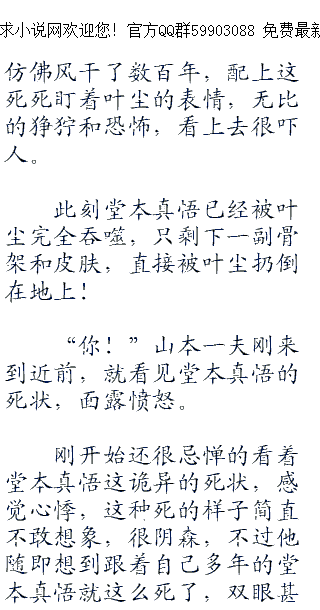 求小说网欢迎您！官方QQ群59903088 免费最新
仿佛风干了数百年，配上这
死死盯着叶尘的表情，无比
的狰狞和恐怖，看上去很吓
人。
此刻堂本真悟已经被叶
尘完全吞噬，只剩下一副骨
架和皮肤，直接被叶尘扔倒
在地上！
“你！”山本一夫刚来
到近前，就看见堂本真悟的
死状，面露愤怒。
刚开始还很忌惮的看着
堂本真悟这诡异的死状，感
觉心悸，这种死的样子简直
不敢想象，很阴森，不过他
随即想到跟着自己多年的堂
本真悟就这么死了，双眼甚